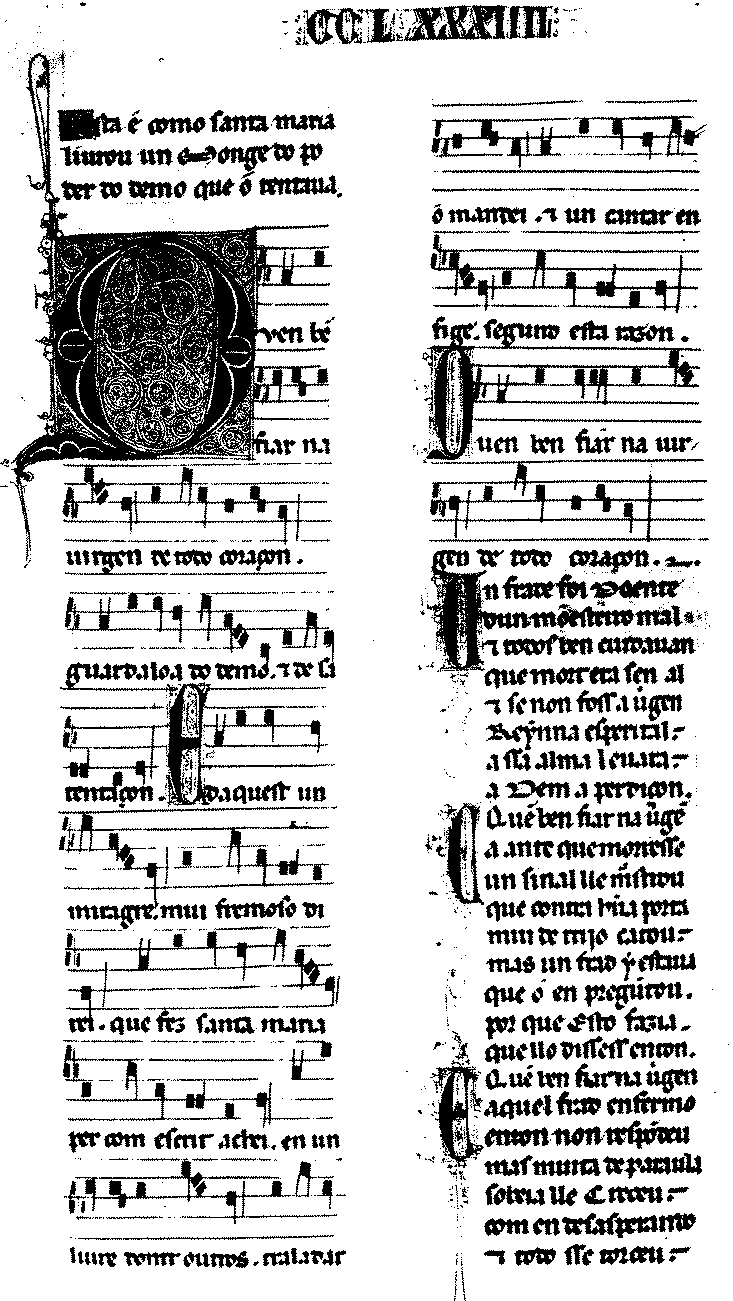 CCLXXXIIII
Esta é como santa maria
liurou un Monge do po
der do demo que ó tentaua.
Quen bẽ
fiar na
uirgen de todo coraçon.
guarda loa do demo. ⁊ de sa
tentaçon. E daquest un
miragre. mui fremoso di
rei. que fez santa maria
per com escrit achei. en un
liure dontr outros. traladar
ó mandei. ⁊ un cantar en
fige. segund esta razon.
Quen ben fiar na uir
gen de todo coraçon.
Un frade foi Doente
dun mõesteiro mal
⁊ todos ben cuidauan
que morrera sen al
⁊ se non foss a uigen
Reynna esperital
a ssa alma leuara
a Dem a perdiçon.
Quẽ ben fiar na uigẽ
Ca ante que morresse
un sinal lle mostrou
que contra hũa porta
mui de rrijo catou
mas un frad y estaua
que o en preguntou.
por que esto fazia.
que llo dissess enton.
Quẽ ben fiar na uigen
E aquel frad enfermo
enton non respondeu
mas muita de paraula
sobeia lle creceu
com en desasperando
⁊ todo sse torceu